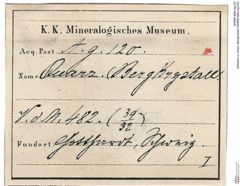 K. K. Mineralogisches Museum.
Acq. Post. A. g. 120.
Name Quarz. (Bergkrystall)
V. d. M. 482. (39/92)
Fundort Gotthardt, Schweiz.
I